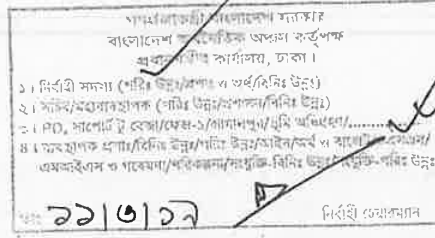 গণপ্রজাতন্ত্রী বাংলাদেশ সরকার
বাংলাদেশ অর্থনৈতিক অঞ্চল কর্তৃপক্ষ
কার্যালয়, ঢাকা।
১। নির্বাহী সদস্য (পরিঃ উন্নঃ/প্রশাঃ ও অর্থ/বিনিঃ উন্নঃ)
২। সচিব/মহাব্যবস্থাপক (পরিঃ উন্নঃ/প্রশাসন/বিনিঃ উন্নঃ)
৩। PD, সাপোর্ট টু বেজা/ফেজ-১/ভূমি অধিগ্রহণ/............
৪। ব্যবস্থাপক প্রশাঃ/বিনিঃ উন্নঃ/পরিঃ উন্নঃ/আইন/অর্থ ও
এমআইএস ও গবেষণা/পরিকল্পনা/সংযুক্তি-বিনিঃ উন্নঃ/সংযুক্তি-পরিঃ উন্নঃ
১১/৩/১৯
নির্বাহী চেয়ারম্যান